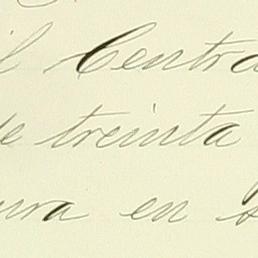 l Centra
de treinta
ura en s